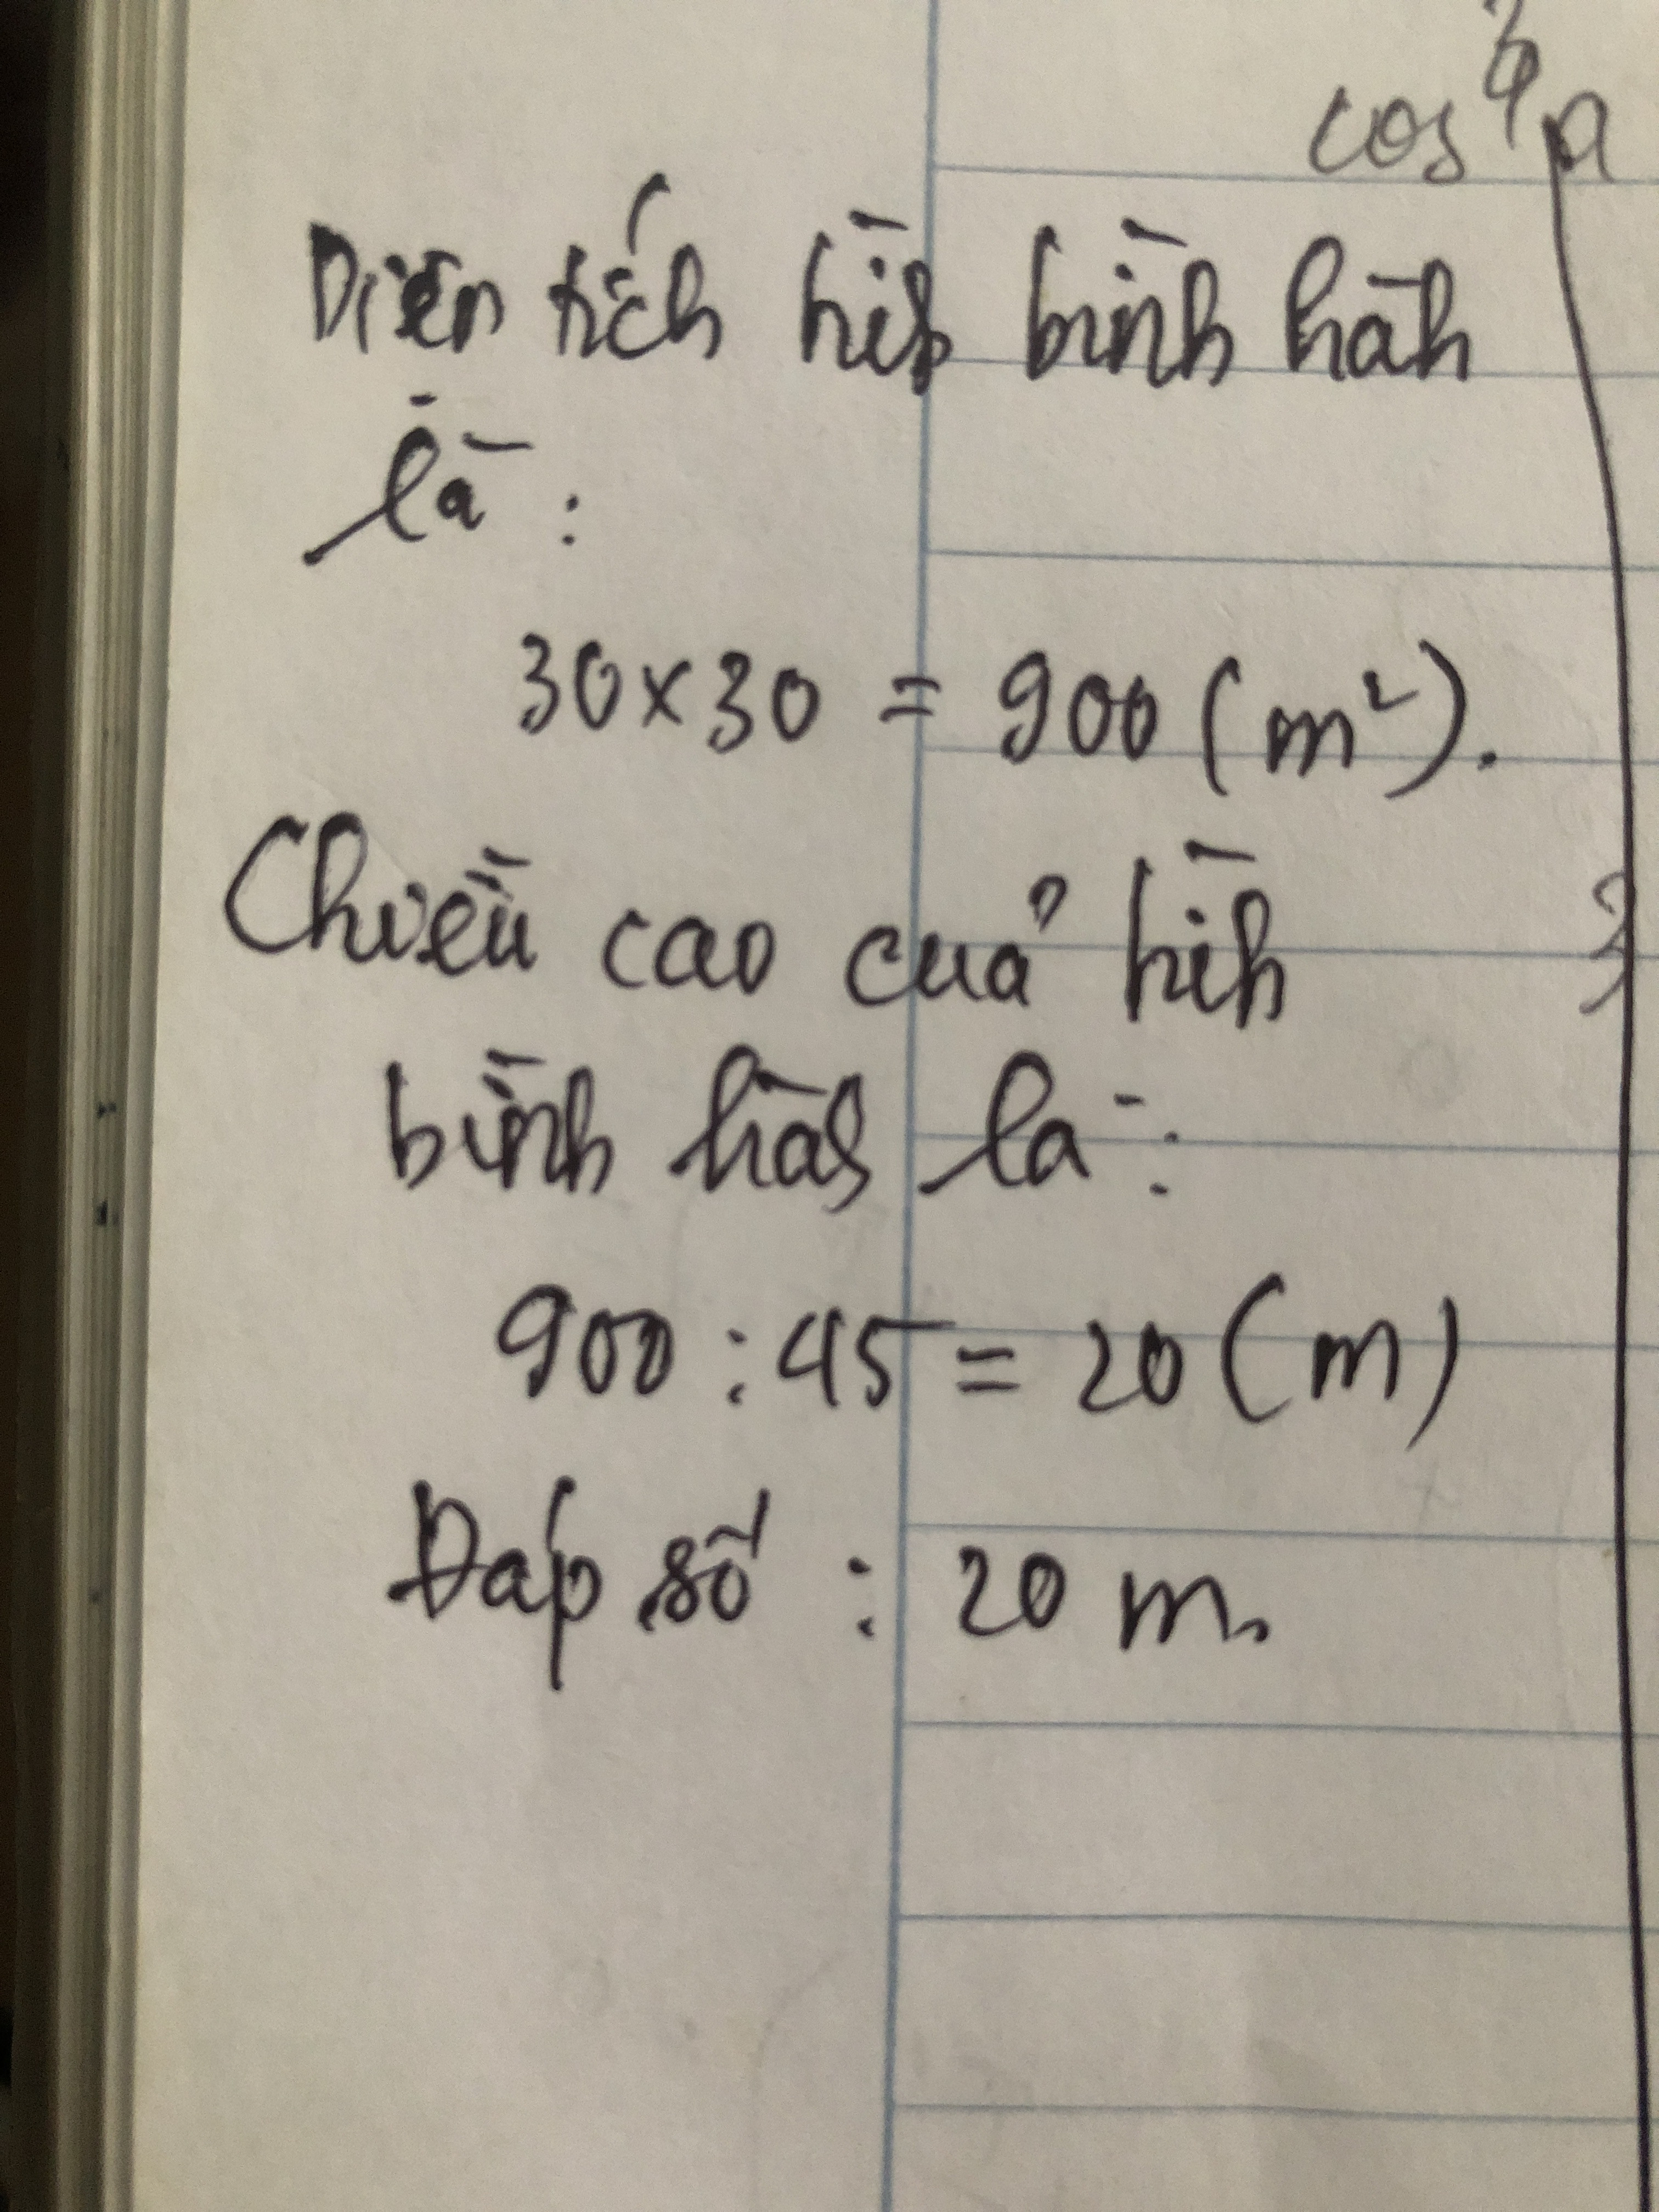 cos⁴a
Diện tích hìh bình hàh
là :
30 x 30 = 900 (m²).
Chiều cao của hìh
bình hàh là :
900 : 45 = 20 (m)
Đáp số : 20 m.